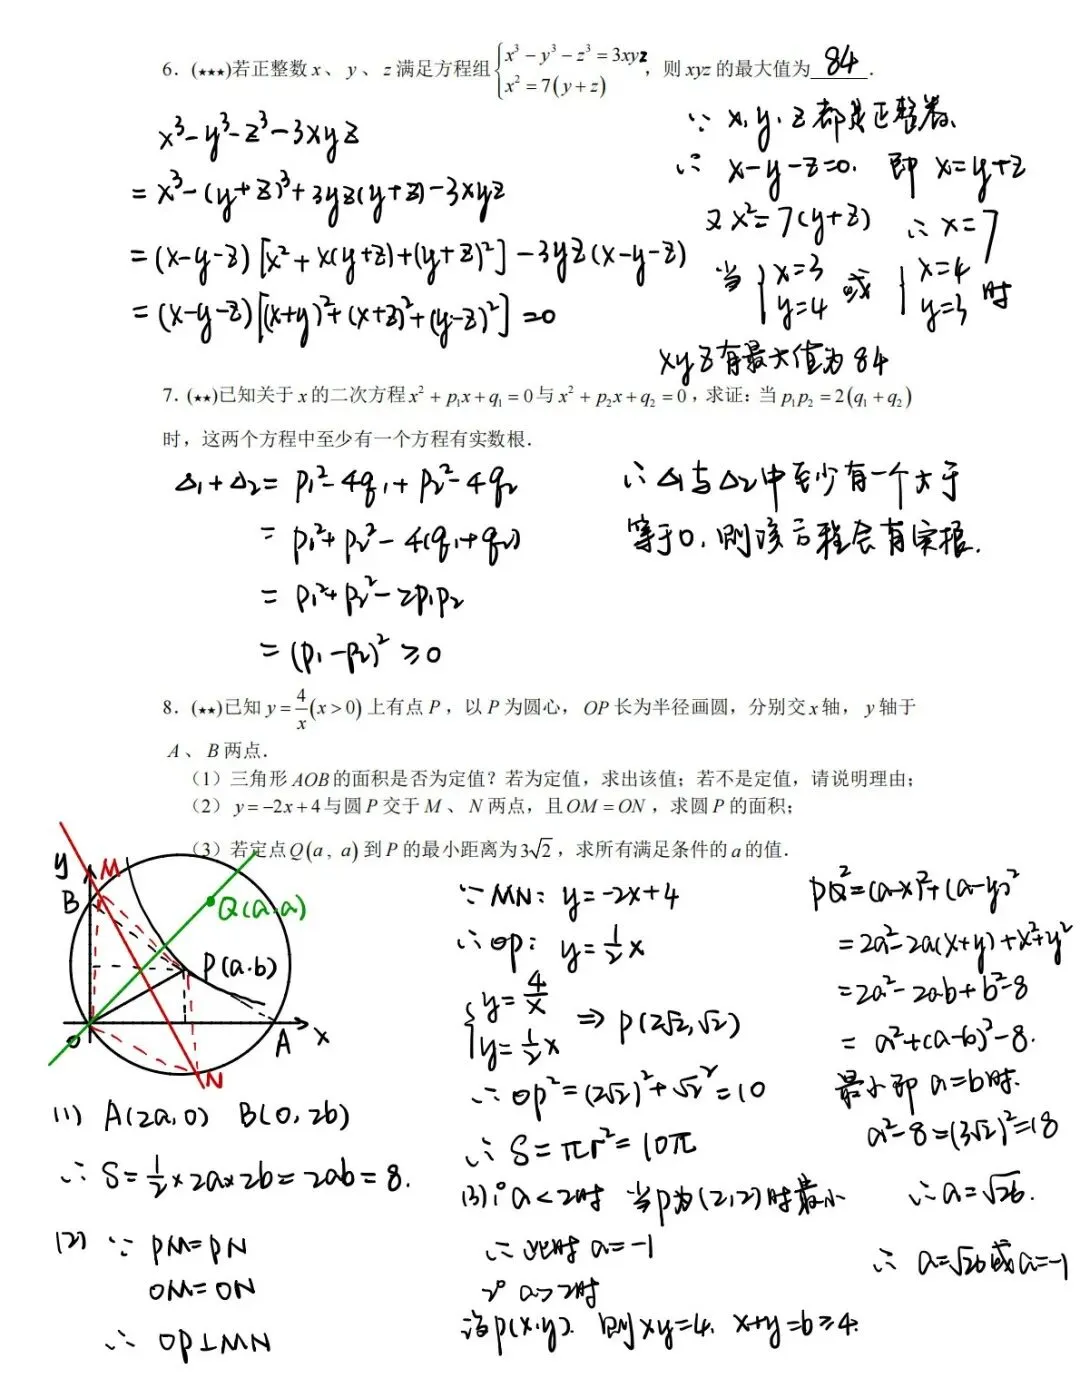 6. (★★★)若正整数 x、y、z 满足方程组 { x³ - y³ - z³ = 3xyz, x² = 7(y+z) ，则 xyz 的最大值为 84 .
x³-y³-z³-3xyz
= x³-(y+z)³+3yz(y+z)-3xyz
= (x-y-z)[x²+x(y+z)+(y+z)²]-3yz(x-y-z)
= (x-y-z)[(x+y)²+(x+z)²+(y-z)²] = 0
∵ x,y,z都是正整数,
∴ x-y-z=0. 即 x=y+z
又x²=7(y+z) ∴ x=7
当 { x=3 y=4 或 { x=4 y=3 时
xyz有最大值为84
7. (★★)已知关于 x 的二次方程 x² + p₁x + q₁ = 0 与 x² + p₂x + q₂ = 0，求证：当 p₁p₂ = 2(q₁ + q₂)
时，这两个方程中至少有一个方程有实数根.
Δ₁+Δ₂ = p₁²-4q₁+p₂²-4q₂
= p₁²+p₂²-4(q₁+q₂)
= p₁²+p₂²-2p₁p₂
= (p₁-p₂)² ≥0
∴ Δ₁与Δ₂中至少有一个大于
等于0, 则该方程会有实根.
8. (★★)已知 y = 4/x (x>0) 上有点 P，以 P 为圆心，OP 长为半径画圆，分别交 x 轴，y 轴于
A、B 两点.
（1）三角形 AOB 的面积是否为定值？若为定值，求出该值；若不是定值，请说明理由；
（2）y = -2x + 4 与圆 P 交于 M、N 两点，且 OM = ON，求圆 P 的面积；
（3）若定点 Q(a，a) 到 P 的最小距离为 3√2，求所有满足条件的 a 的值.
y
M
B
Q(a,a)
P(a.b)
O
A
x
N
(1) A(2a,0) B(0,2b)
∴ S=½×2a×2b=2ab=8.
(2) ∵ PM=PN
OM=ON
∴ OP⊥MN
∵ MN: y=-2x+4
∴ OP: y=½x
{ y=4/x y=½x ⇒ P(2√2,√2)
∴ OP²=(2√2)²+√2²=10
∴ S=πr²=10π
(3) 1° a<2时 当P为(2,2)时最小
∴ 此时 a=-1
2° a>2时
设P(x,y). 则xy=4, x+y=b≥4.
PQ²=(a-x)²+(a-y)²
=2a²-2a(x+y)+x²+y²
=2a²-2ab+b²-8
= a²+(a-b)²-8.
最小即 a=b时.
a²-8=(3√2)²=18
∴ a=√26.
∴ a=√26或a=-1